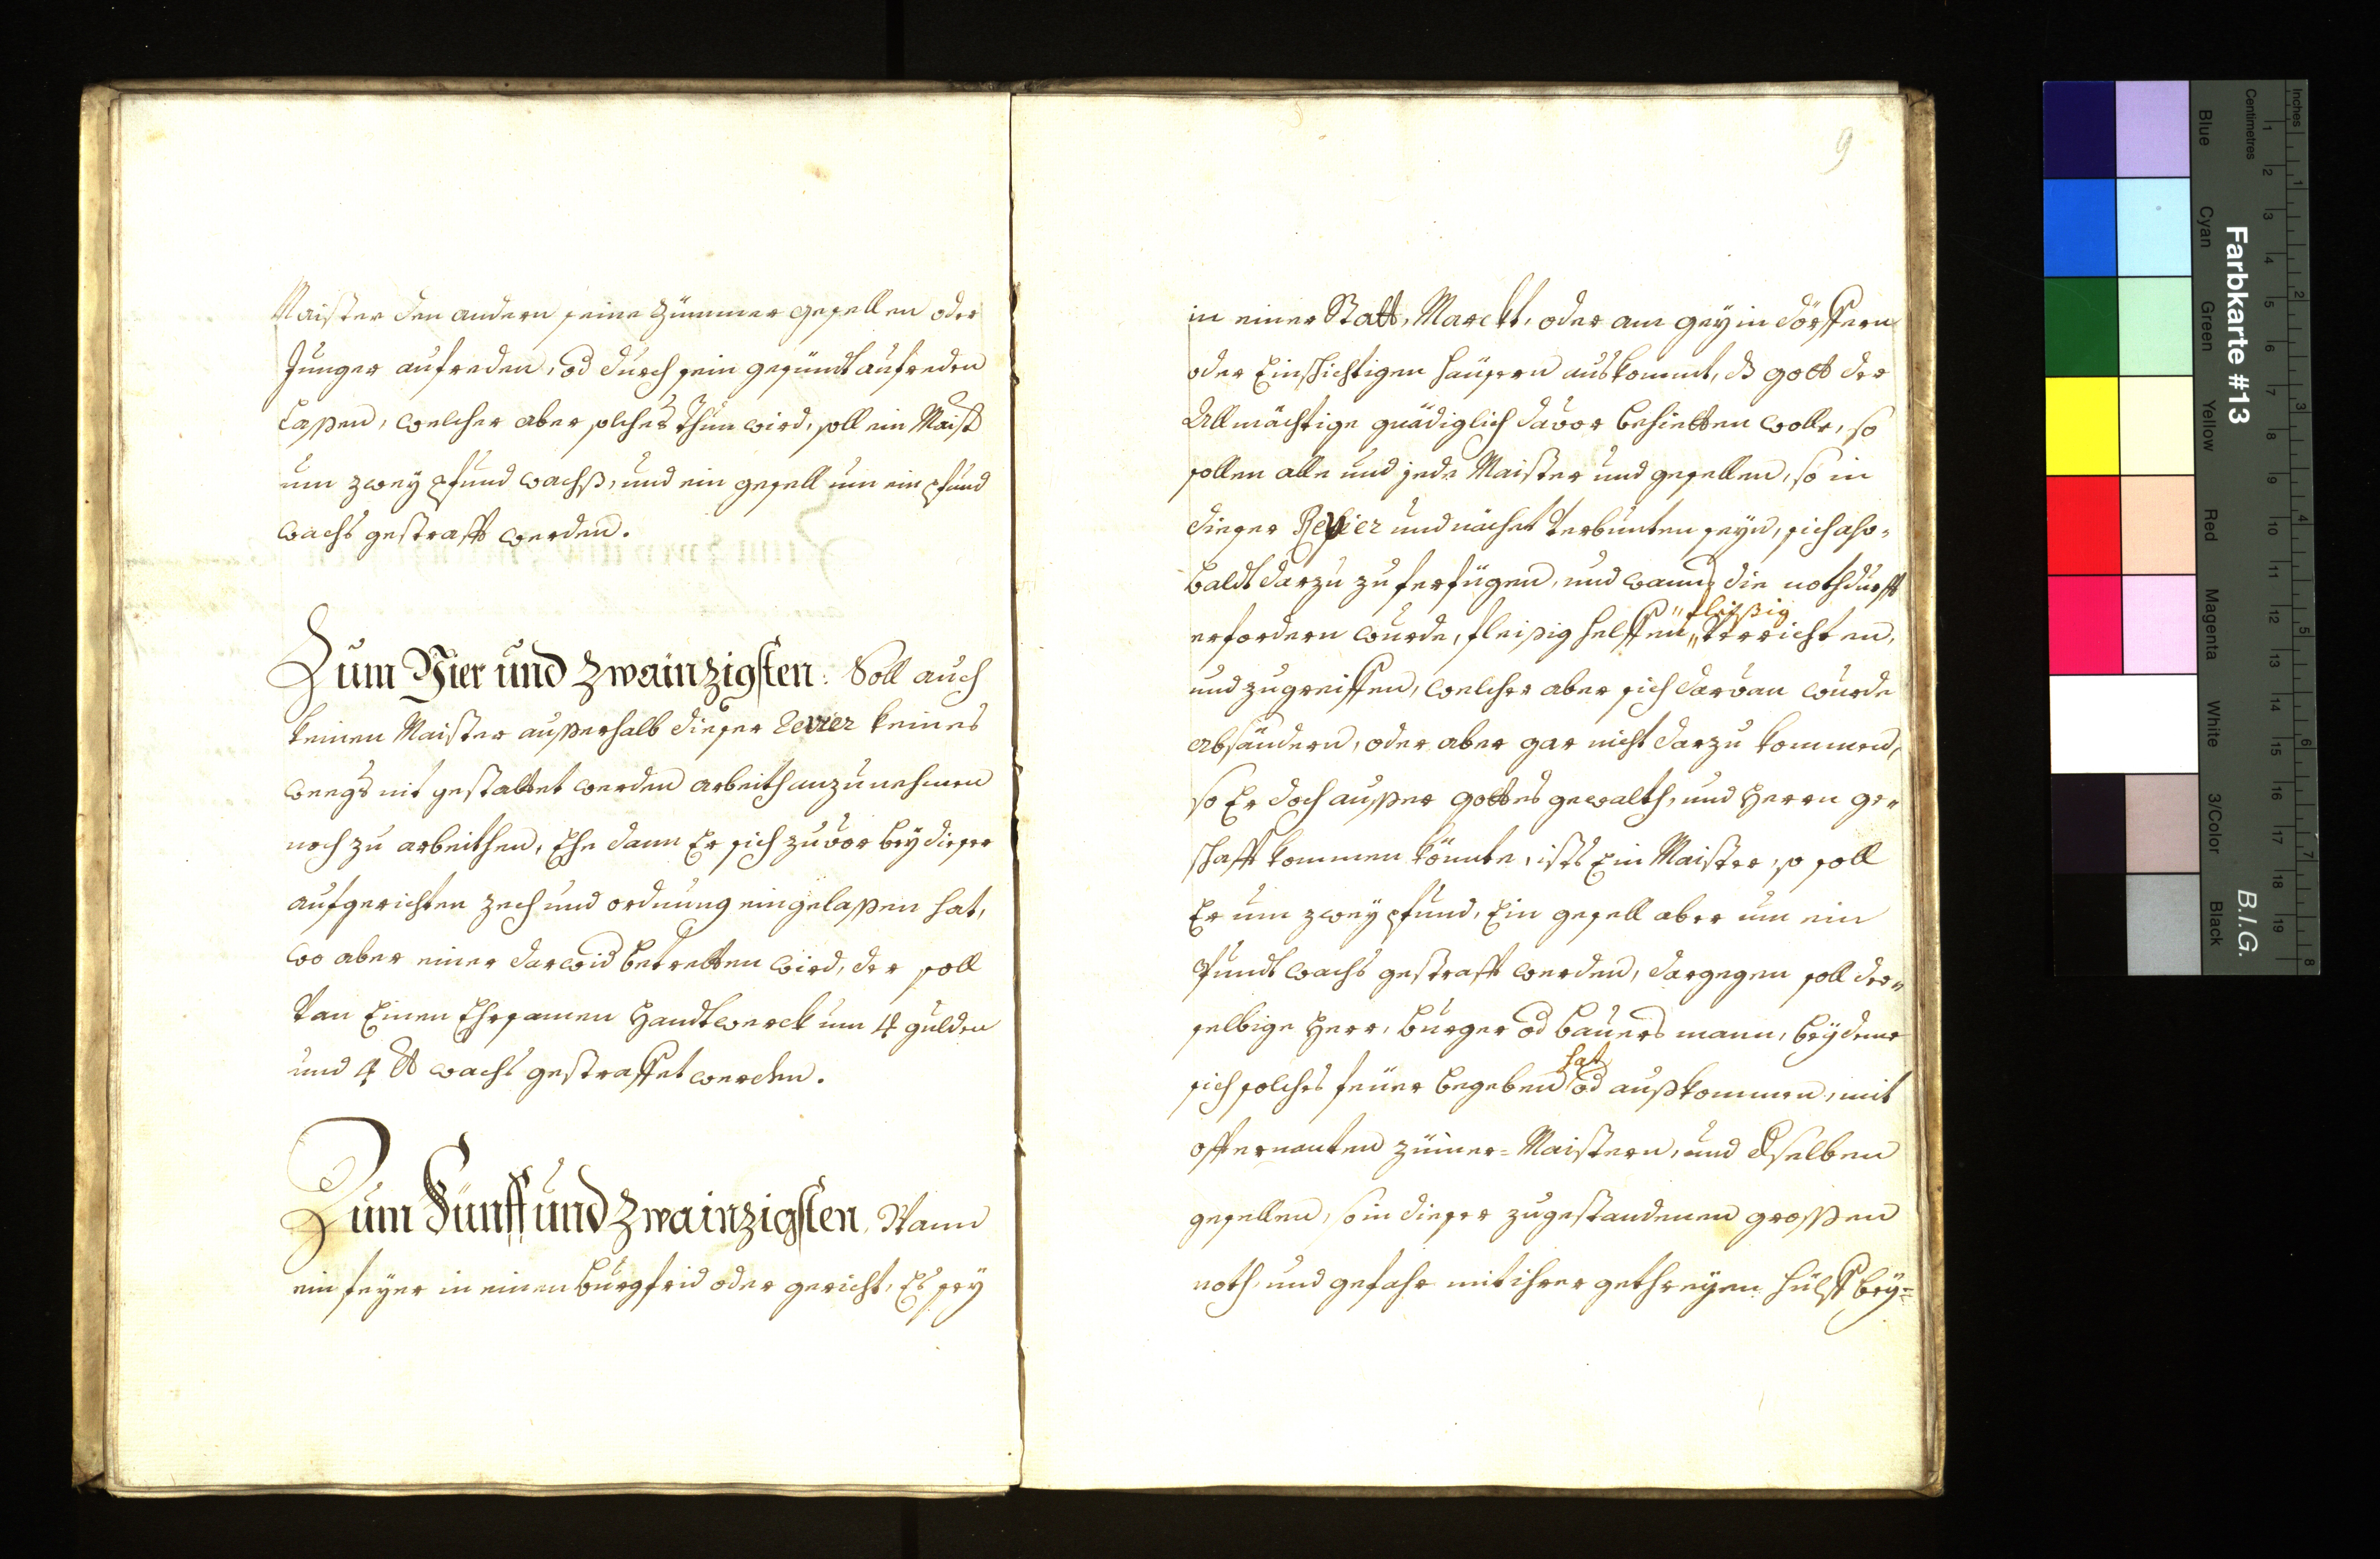 Maister den andern seine Zümmer gesellen oder
Junger aufreden, od durch sein gesündt aufreden
Laßen, welcher aber solches thun wird, soll ein Maist
um zwey pfund wachß, und ein gesell um ein pfund
wachs gestrafft werden.
Zum Vier und Zwainzigsten: Soll auch
keinen Maister außerhalb dieser Revier keines
weegs nit gestattet werden arbeith anzunehmen
noch zu arbeithen, Ehe dann Er sich zuvor bey dieser
aufgerichten zech und ordnung eingelaßen hat,
wo aber einer darwid betretten wird, der soll
Van Einen Ehrsamen Handtwerck um 4 gulden
und 4 ℔ wachs gestraffet werden.
Zum Fünff und Zwainzigsten, Wann
ein feyer in einen burgfrid oder gericht, Es sey
9
in einer Statt, Marckt, oder am gey in dörffern
oder Einschichtigen häusern auskommt, ds gott der
Allmächtige gnädiglich davor behietten wolle, so
sollen alle und jede Maister und gesellen, so in
dieser Revier und nächst Verbunten seyn, sich also-
baldt darzu zu ferfügen, und wann die nothdurfft
fleißig
erfordern wurde, fleißig helffen Verrichten,
und zugreiffen, welcher aber sich darvan wurde
absändern, oder aber gar nicht darzu kommen,
so Er doch außer gottes gewalth, und Herrn ge-
schafft kommen könnte, ists Ein Maister, so soll
Er um zwey pfund, Ein gesell aber um ein
Pfundt wachs gestrafft werden, dargegen soll der-
selbige Herr, burger od bauers mann, bey deme
hat
sich solches feüer begeben od außkommen, mit
offternanten züm̄er-Maistern, und dselben
gesellen, so in dieser zugestandenen großen
noth, und gefahr mit ihrer gethreyen hülff bey-
Farbkarte #13
B.I.G.
Inches
Centimetres
Blue
Cyan
Green
Yellow
Red
Magenta
White
3/Color
Black